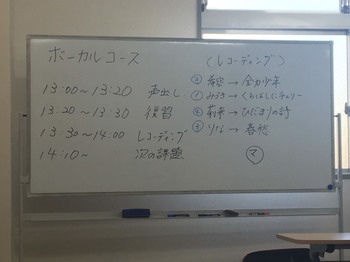 ボーカルコース
13:00～13:20 声出し
13:20～13:30 復習
13:30～14:00 レコーディング
14:10～ 次の課題
(レコーディング)
→ 全力少年
① みづき → くちばしにチェリー
→ ひだまりの詩
りな → 春愁
マ